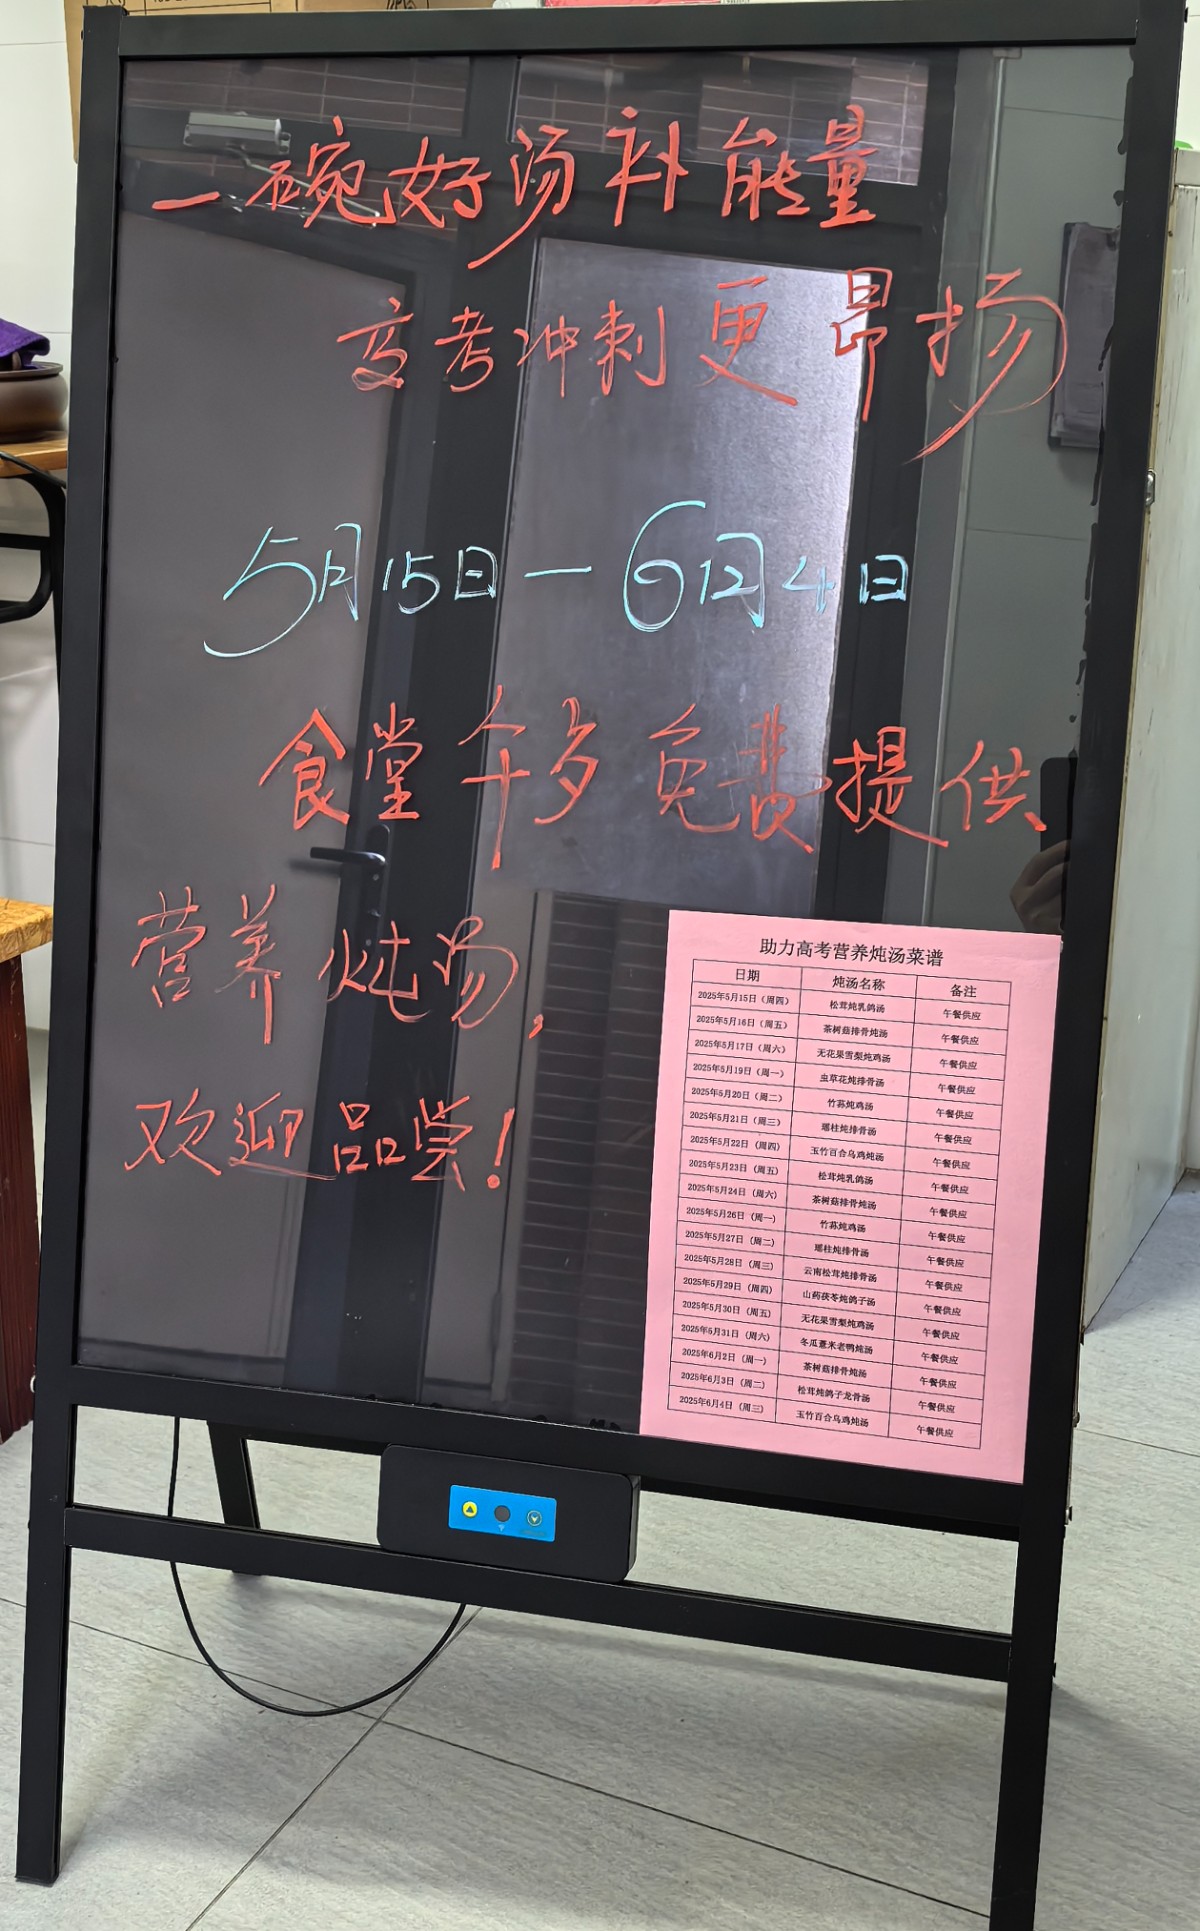 一碗好汤补能量
高考冲刺更昂扬
5月15日一6月4日
食堂午多免费提供
营养炖汤，
欢迎品尝！
助力高考营养炖汤菜谱
日期 炖汤名称 备注
2025年5月15日（周四） 松茸炖乳鸽汤 午餐供应
2025年5月16日（周五） 茶树菇排骨炖汤 午餐供应
2025年5月17日（周六） 无花果雪梨炖鸡汤 午餐供应
2025年5月19日（周一） 虫草花炖排骨汤 午餐供应
2025年5月20日（周二） 竹荪炖鸡汤 午餐供应
2025年5月21日（周三） 瑶柱炖排骨汤 午餐供应
2025年5月22日（周四） 玉竹百合乌鸡炖汤 午餐供应
2025年5月23日（周五） 松茸炖乳鸽汤 午餐供应
2025年5月24日（周六） 茶树菇排骨炖汤 午餐供应
2025年5月26日（周一） 竹荪炖鸡汤 午餐供应
2025年5月27日（周二） 瑶柱炖排骨汤 午餐供应
2025年5月28日（周三） 云南松茸炖排骨汤 午餐供应
2025年5月29日（周四） 山药茯苓炖鸽子汤 午餐供应
2025年5月30日（周五） 无花果雪梨炖鸡汤 午餐供应
2025年5月31日（周六） 冬瓜薏米老鸭炖汤 午餐供应
2025年6月2日（周一） 茶树菇排骨炖汤 午餐供应
2025年6月3日（周二） 松茸炖鸽子龙骨汤 午餐供应
2025年6月4日（周三） 玉竹百合乌鸡炖汤 午餐供应